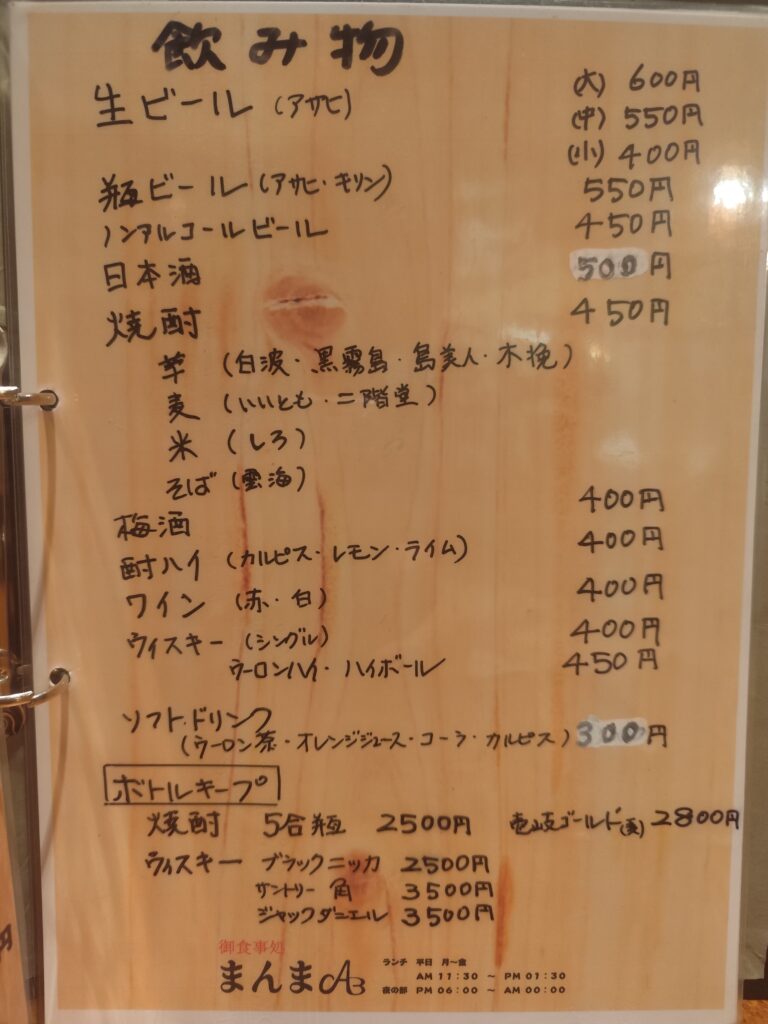 飲み物
生ビール (アサヒ) (大) 600円
(中) 550円
(小) 400円
瓶ビール (アサヒ・キリン) 550円
ノンアルコールビール 450円
日本酒 500円
焼酎 450円
芋 (白波・黒霧島・島美人・木挽)
麦 (いいとも・二階堂)
米 (しろ)
そば (雲海)
梅酒 400円
酎ハイ (カルピス・レモン・ライム) 400円
ワイン (赤・白) 400円
ウィスキー (シングル) 400円
ウーロンハイ・ハイボール 450円
ソフトドリンク
(ウーロン茶・オレンジジュース・コーラ・カルピス) 300円
ボトルキープ
焼酎 5合瓶 2500円 壱岐ゴールド(麦) 2800円
ウィスキー ブラックニッカ 2500円
サントリー 角 3500円
ジャックダニエル 3500円
御食事処
まんま
ランチ 平日 月～金
AM 11:30 ～ PM 01:30
夜の部 PM 06:00 ～ AM 00:00